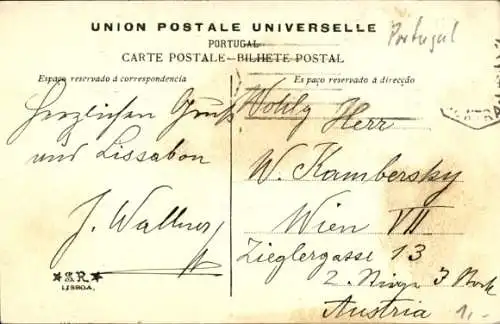 UNION POSTALE UNIVERSELLE
PORTUGAL
Portugal
CARTE POSTALE—BILHETE POSTAL
Espaço reservado á correspondencia
Es paço reservado á direcção
Herzlichen Gruß
und Lissabon
J. Wallner
Herr
W. Kambersky
Wien VII
Zieglergasse 13
2. 3 Stock
Austria
LISBOA.
1,-